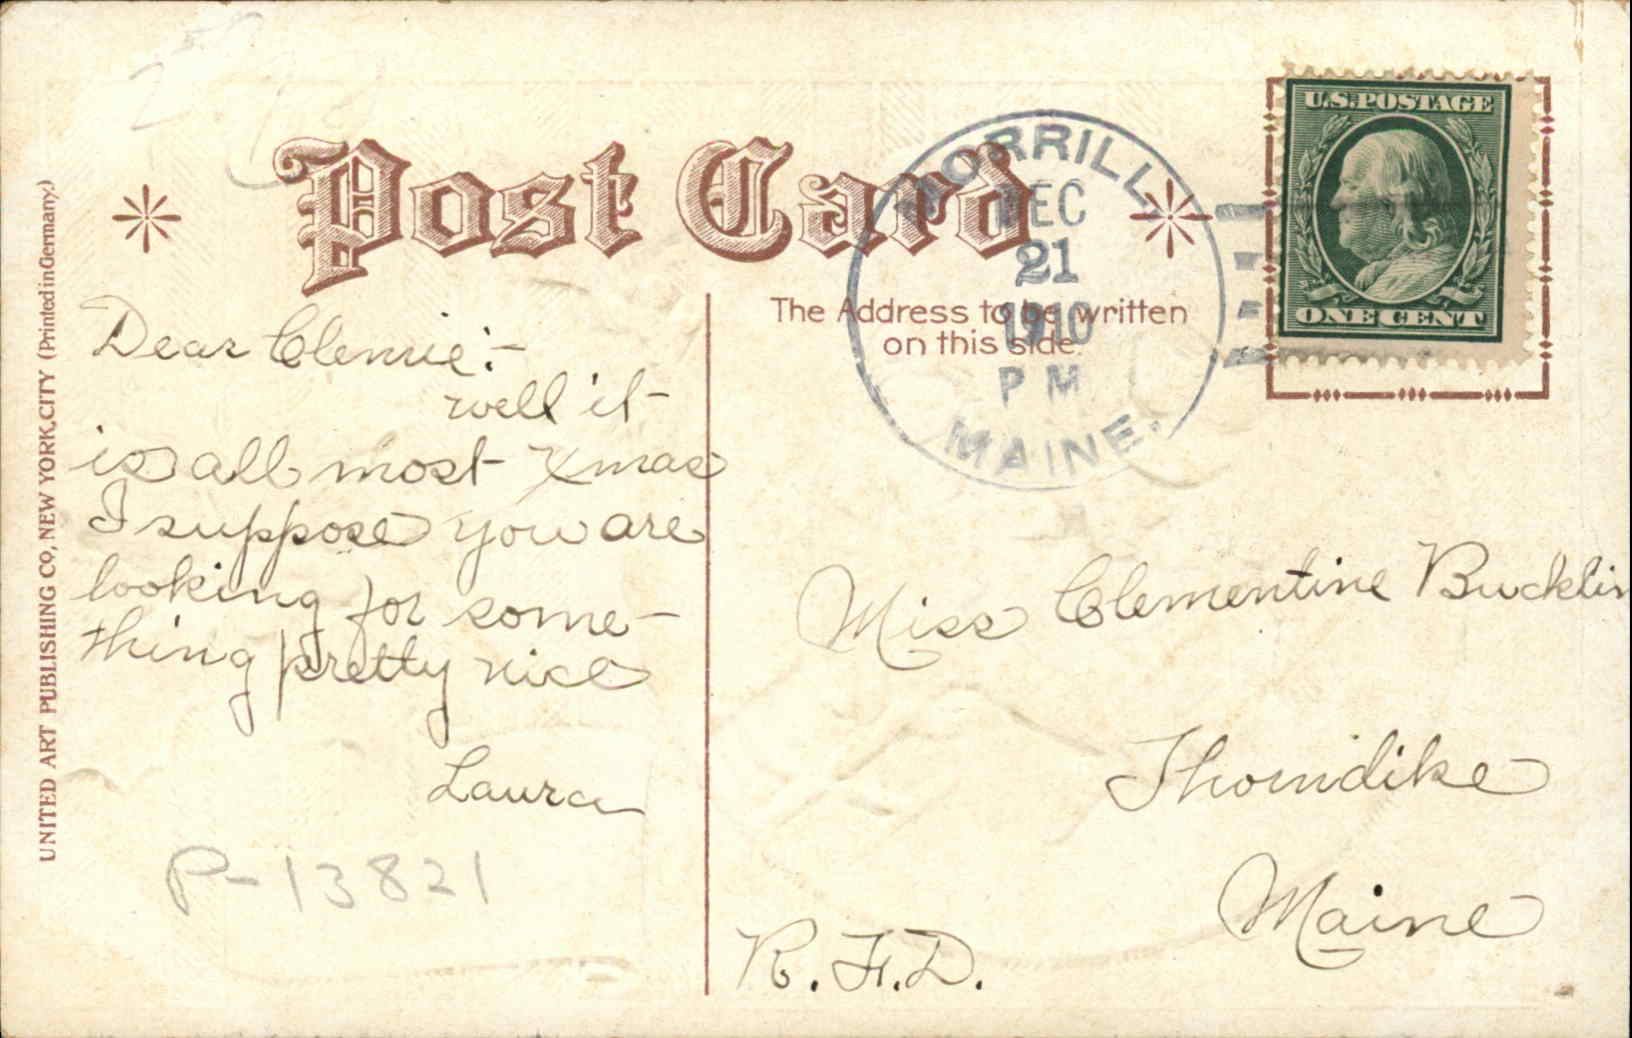 UNITED ART PUBLISHING CO., NEW YORK, CITY (Printed in Germany.)
Post Card
The Address to be written
on this side.
MORRILL
DEC
21
1910
PM
MAINE.
U.S. POSTAGE
ONE CENT
Dear Clemie:-
well it
is all most Xmas
I suppose you are
looking for some-
thing pretty nice
Laura
P-13821
Miss Clementine Bucklin
Thorndike
Maine
R.F.D.